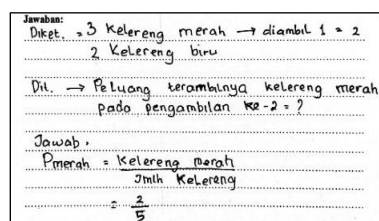 Jawaban:
Diket. = 3 Kelereng merah → diambil 1 = 2
2 Kelereng biru
Dit. → Peluang terambilnya kelereng merah
pada pengambilan ke-2 = ?
Jawab.
Pmerah = Kelereng merah
Jmlh Kelereng
= 2
5